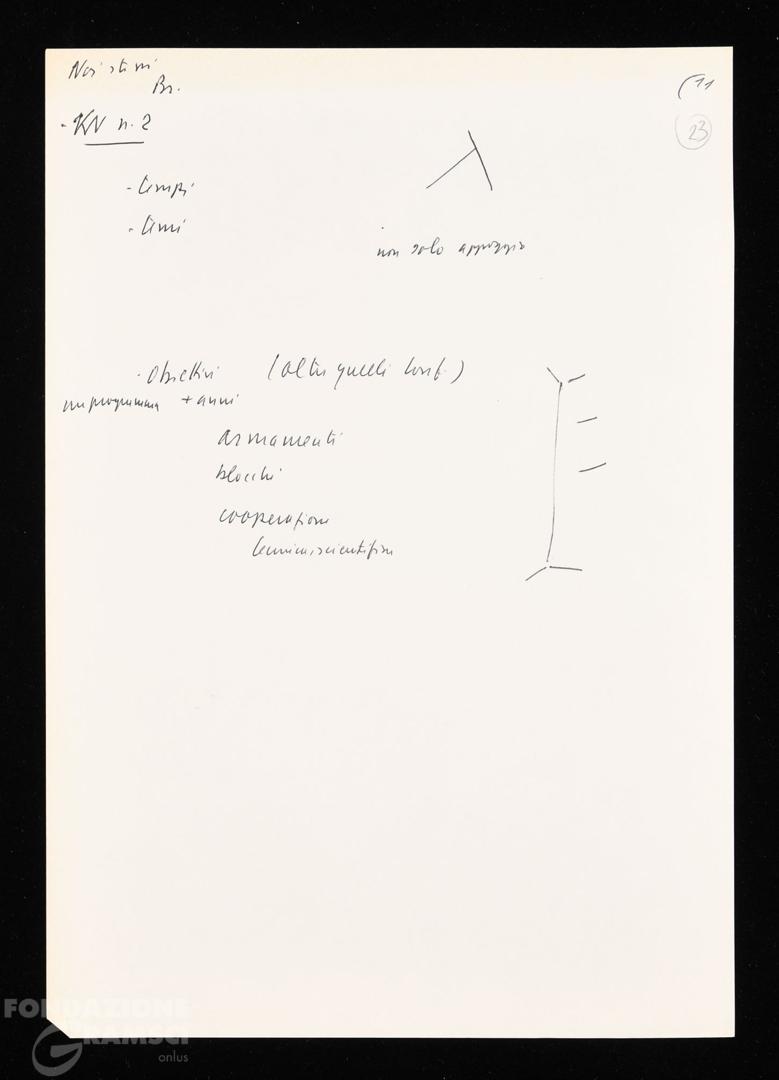 Noi stessi
Br.
(11
23
- KV n. 2
- tempi
- temi
non solo appoggio
- Obiettivi (oltre quelli conf.)
un programma + anni
armamenti
blocchi
cooperazione
tecnica, scientifica
FONDAZIONE
GRAMSCI
onlus